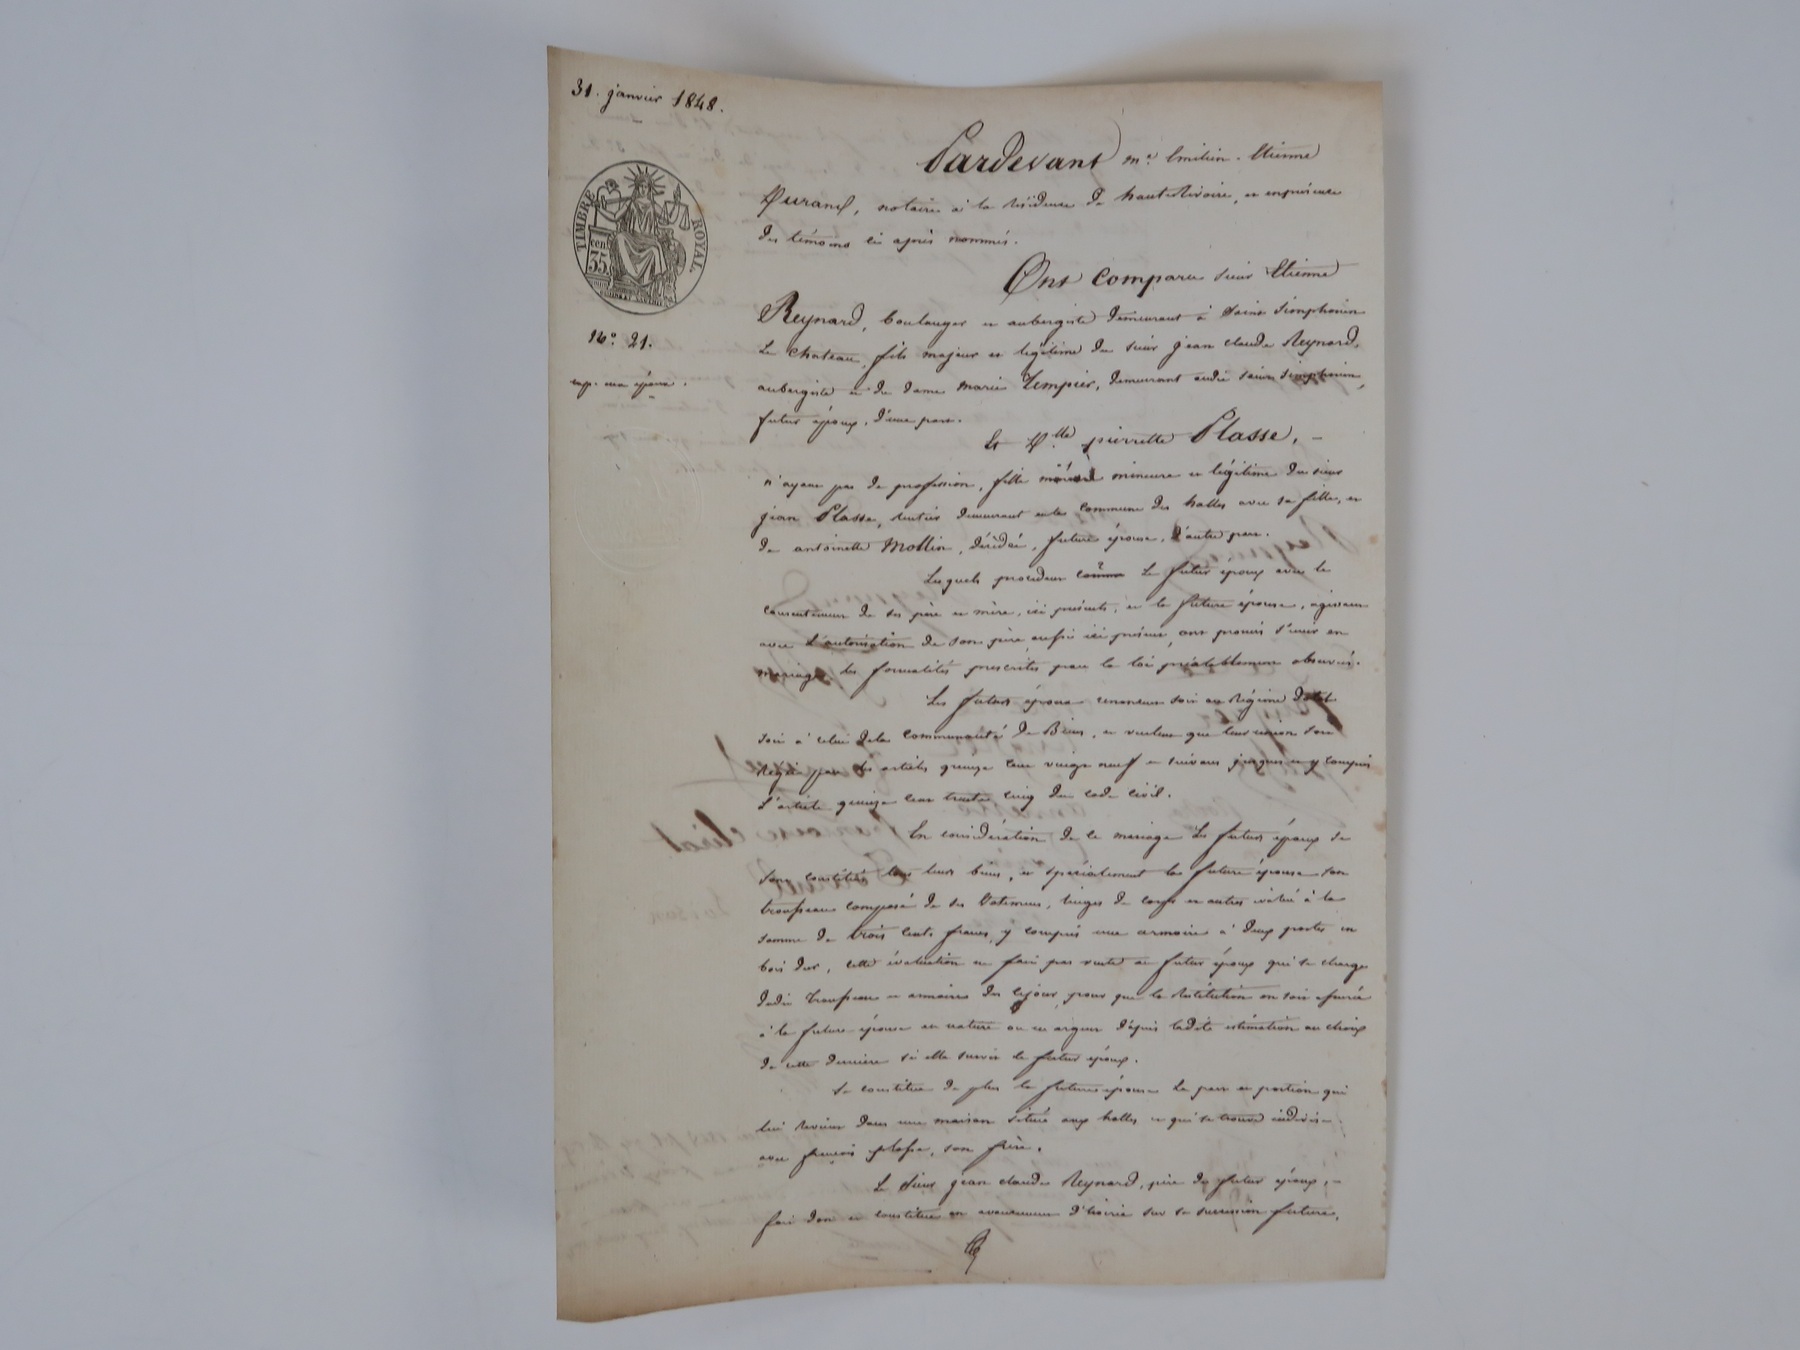 31. janvier 1848.
TIMBRE ROYAL.
cen.
35
N° 21.
Pardevant Me Emilien-Etienne
Durand, notaire à la résidence de hauterivoire, en présence
des témoins ci après nommés.
Ont Comparu sieur Etienne
Reynard, boulanger et aubergiste demeurant à Saint Simphorien
Le Chateau, fils majeur et légitime du sieur jean claude Reynard,
aubergiste et de dame marie Tempier, demeurant audit saint simphorien,
futur époux, d'une part.
Et Dlle pierrette Plasse, –
n'ayant pas de profession, fille mineure et légitime du sieur
jean Plasse, rentier demeurant en la commune des halles avec sa fille, et
de antoinette Mollin, décédée, future épouse, d'autre part.
Lesquels procedant Le futur époux avec le
consentement de ses père et mère, ici présents, et la future épouse, agissant
avec L'autorisation de son père aussi ici présent, ont promis s'unir en
mariage, les formalités prescrites par la loi préalablement observées.
Les futurs époux renoncent soit au Régime Dotal
soit à celui dela Communauté de Biens, et veulent que leur union soit
régie par les articles quinze cent vingt neuf et suivans jusques et y compris
L'article quinze cent trente cinq du code civil.
En considération de ce mariage Les futurs époux se
sont constitués tous leurs biens, et spécialement la future épouse son
trousseau composé de ses Vetemens, linges de corps et autres évalué à la
somme de trois cents francs, y compris une armoire à deux portes en
bois dur, cette évaluation en fait pas vente au futur époux qui se charge
dudit trousseau et armoire des cejour, pour que la Restitution en soit assurée
à la future épouse en nature ou en argent d'après ladite estimation au choix
de cette dernière si elle survit le futur époux.
Se constitue de plus la future épouse La part et portion qui
lui revient dans une maison située aux halles et qui se trouve indivise
avec françois plasse, son frère.
Le Sieur jean claude Reynard, père du futur époux, –
fait don et constitue en avancement d'hoirie sur sa succession future,